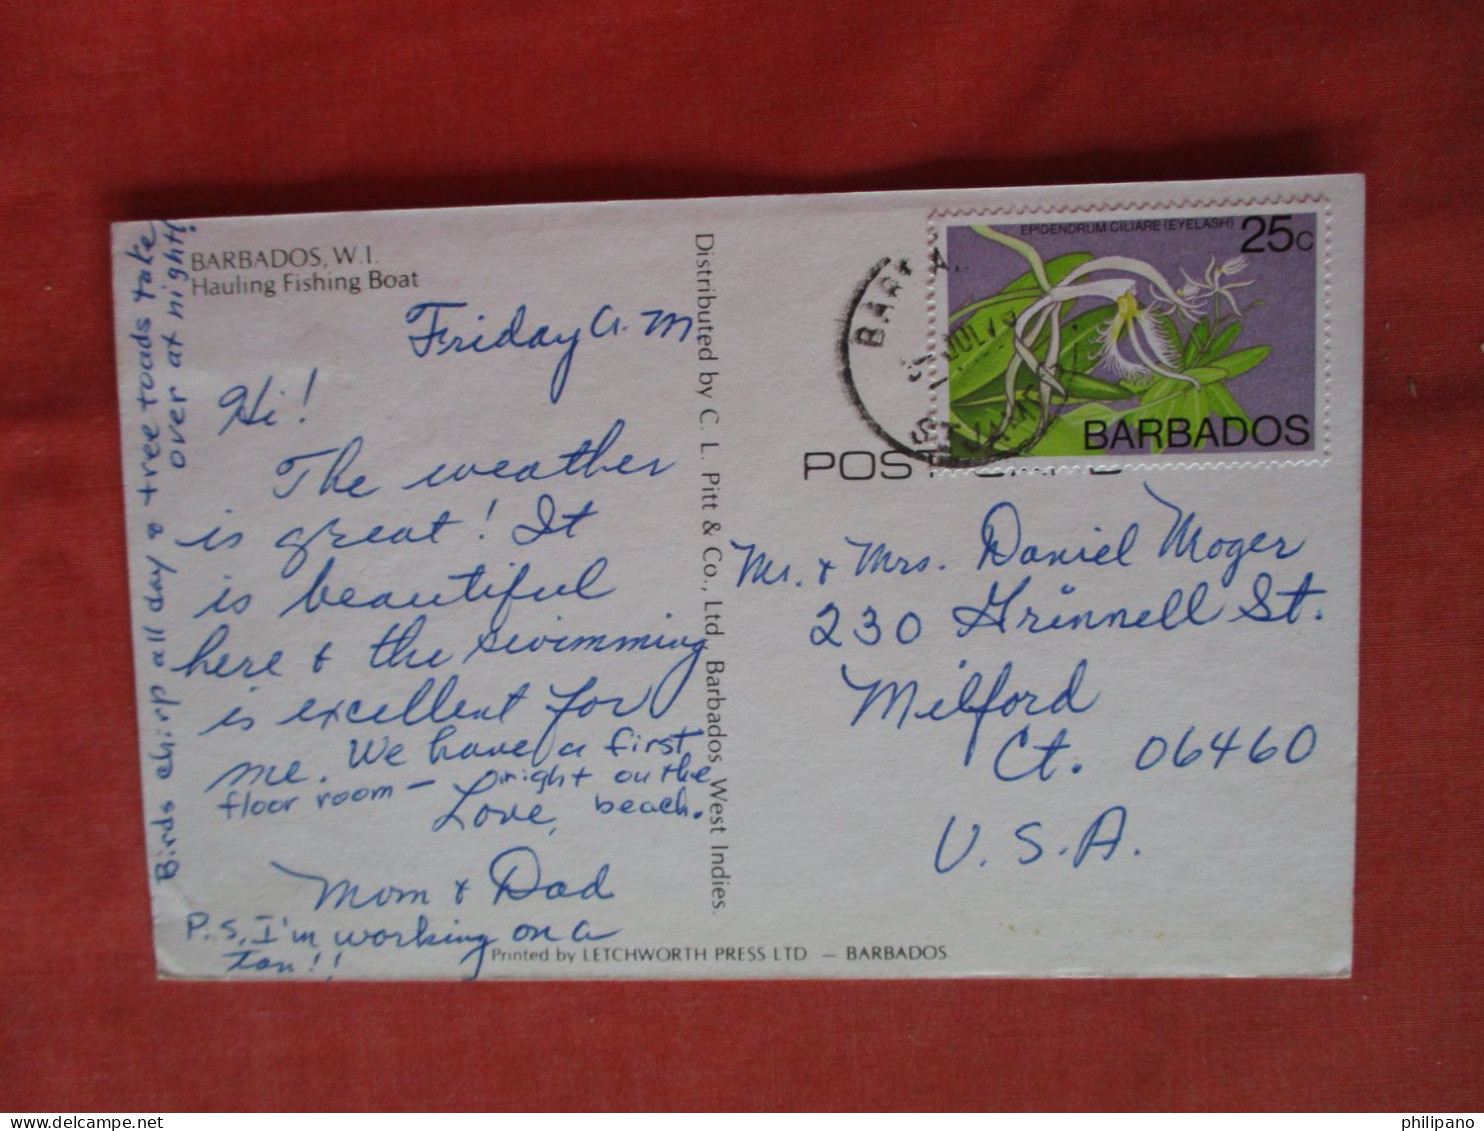 BARBADOS, W.I.
Hauling Fishing Boat
Friday a.m
Hi!
The weather
is great! It
is beautiful
here & the swimming
is excellent for
me. We have a first
floor room - right on the
beach.
Love,
Mom & Dad
P.S. I'm working on a
tan!!
Birds chirp all day & tree toads take
over at night!
Distributed by C. L. Pitt & Co., Ltd. Barbados West Indies.
Printed by LETCHWORTH PRESS LTD — BARBADOS
EPIDENDRUM CILIARE (EYELASH)
25c
BARBADOS
JUL 79
ST. JAMES
POS
Mr. & Mrs. Daniel Moger
230 Grinnell St.
Milford
Ct. 06460
U.S.A.
philipano